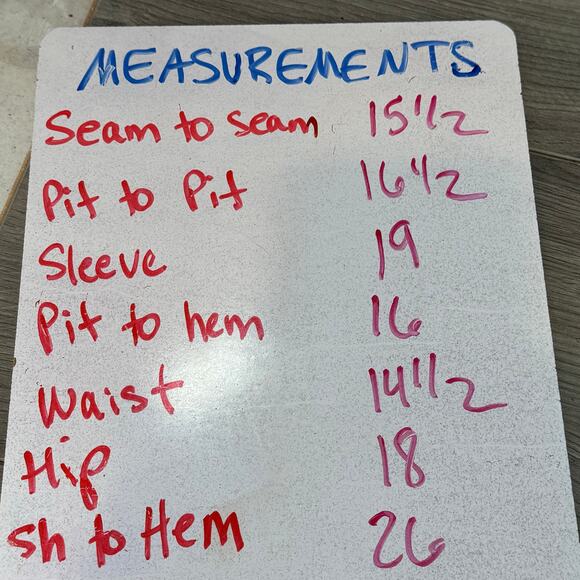 MEASUREMENTS
Seam to seam 15 1/2
Pit to Pit 16 1/2
Sleeve 19
Pit to hem 16
Waist 14 1/2
Hip 18
Sh to Hem 26